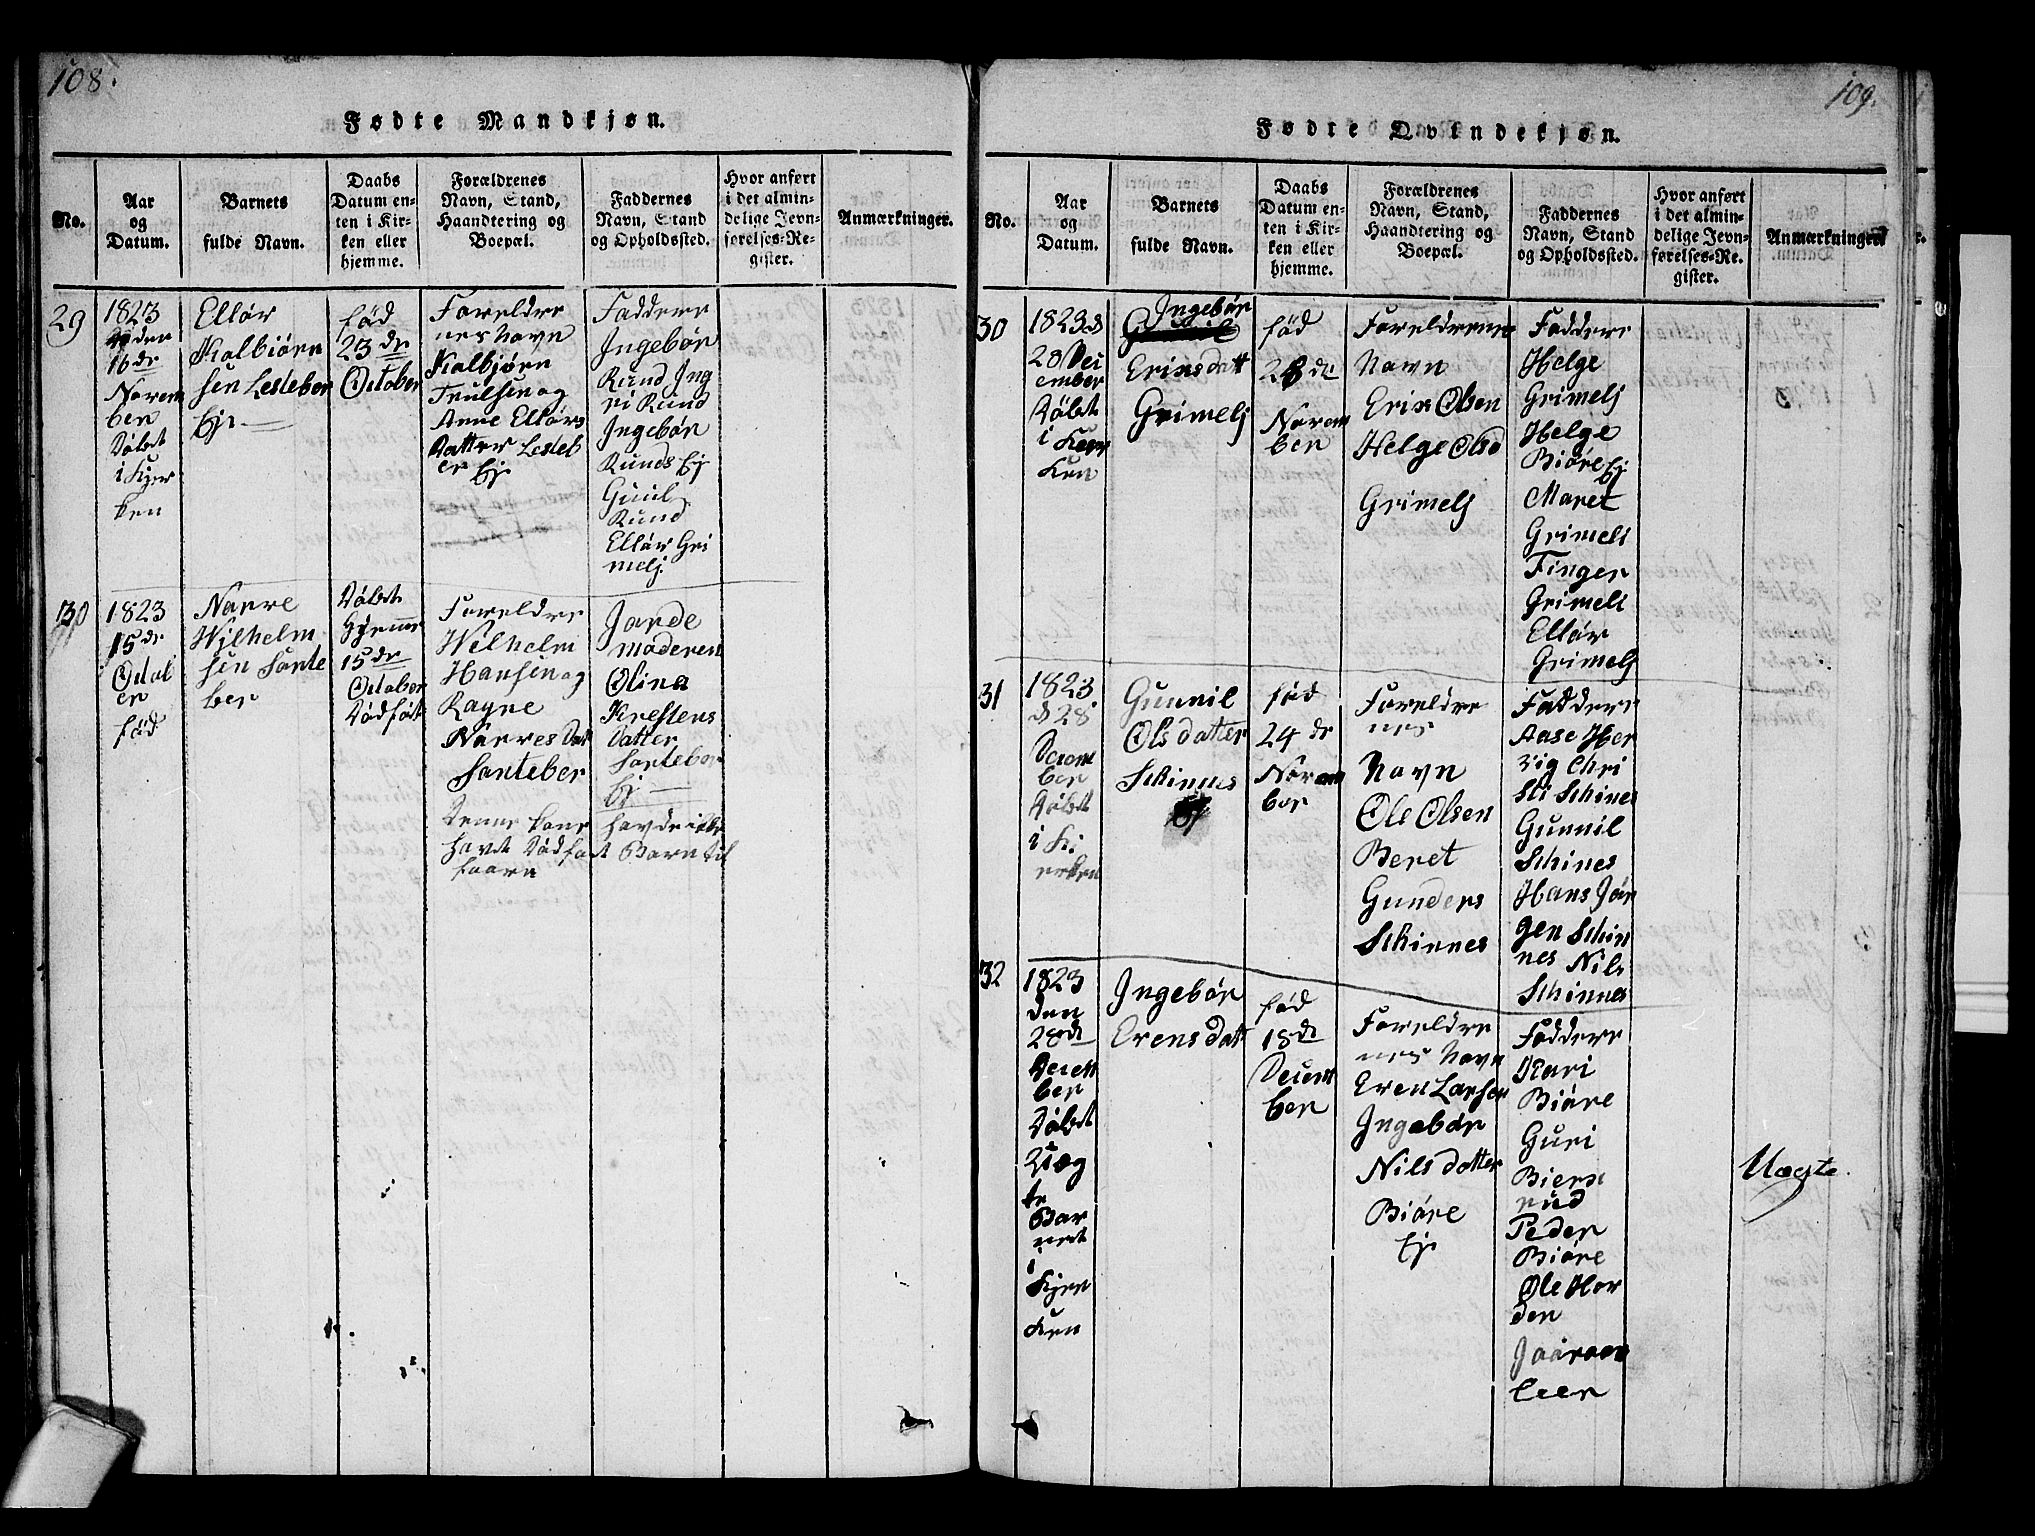 108.
Fødte Mandkjøn.
No.
Aar
og
Datum.
Barnets
fulde Navn.
Daabs
Datum en-
ten i Kir-
ken eller
hjemme.
Forældrenes
Navn, Stand,
Haandtering og
Boepæl.
Faddernes
Navn, Stand
og Opholdssted.
Hvor anført
i det almin-
delige Jevn-
førelses-Re-
gister.
Anmærkninger.
29
1823
den
16de
Novem
ber
Døbt
i Kjer
ken
Ellør
Kolbiørn
sen Lesteber
Ejr
fød
23de
Octtober
Foreldre
nes Navn
Kolbjørn
Trulsen og
Anne Ellørs
Datter Lesteb
er Ej
Faddere
Ingebør
Rund Ing
ri Rund
Ingebør
Runds Ej
Gunil
Rund
Ellør Gri
melj
30
1823
15de
Octob
er
fød
Narve
Wjlhelm
sen Sønte
ber
Døbt
Hjemme
15de
Octtober
Dødfødt
Foreldre
Wilhelm
Hansen og
Ragne
Narves Dat
Santeber
Denne Kone havde i alt
havt Dødfødt Barn til
faarn
Jorde
moderen
Olina
Krestens
Datter
Santeber
Ej
109.
Fødte Qvindekjøn.
No.
Aar
og
Datum.
Barnets
fulde Navn.
Daabs
Datum en-
ten i Kir-
ken eller
hjemme.
Forældrenes
Navn, Stand,
Haandtering og
Boepæl.
Faddernes
Navn, Stand
og Opholdssted.
Hvor anført
i det almin-
delige Jevn-
førelses-Re-
gister.
Anmærkninger.
30
1823 d
28 Dec
ember
Døbt
i Keer
Ken
Ingebør
Erinsdatt
Grimelj
fød
28de
Novem
ber
Foreldrenes
Navn
Erik Olsen
Helge Olsd
Grimelj
Faddere
Helge
Grimelj
Helge
Biøre Ej
Maret
Grimeli
Finger
Grimeli
Ellør
Grimelj
31
1823
d 28
Decem
ber
Døbt
i Ki
erken
Gunnil
Olsdatter
Skinnes
Ej
fød
24de
Novem
ber
Foreldre
nes
Navn
Ole Olsen
Beret
Gunders
Skinnes
Faddere
Aase Her
vig Chri
sti Skines
Gunnil
Skines
Hans Jør
gen Skin
nes Nils
Skinnes
32
1823
Den
28de
Decem
ber
Døbt
Uæg
te
Bar
net
i
Kjer
Ken
Ingebør
Erensdatt
fød
18de
Decem
ber
Foreldre
nes Navn
Eren Larsen
Ingebør
Nilsdatter
Biøre
Ej
Faddere
Kari
Biøre
Guri
Biers
rud
Peder
Biøre
Ole Hor
den
Uægte